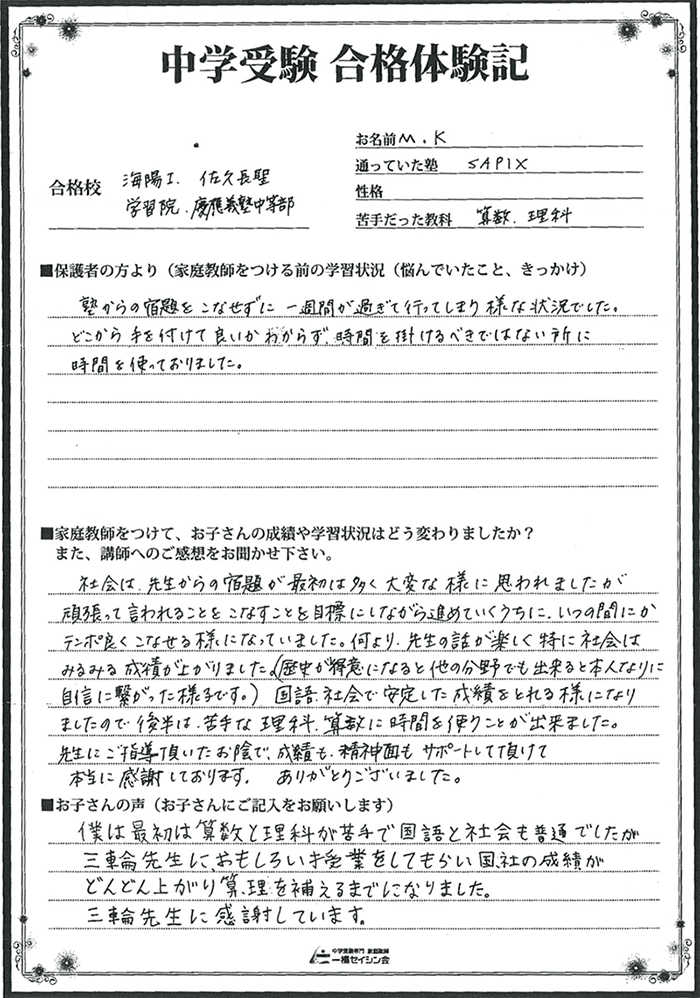 中学受験 合格体験記
お名前 M.K
通っていた塾 SAPIX
合格校 海陽Ⅰ. 佐久長聖
学習院. 慶應義塾中等部
性格
苦手だった教科 算数. 理科
■保護者の方より（家庭教師をつける前の学習状況（悩んでいたこと、きっかけ）
塾からの宿題をこなせずに一週間が過ぎて行ってしまう様な状況でした。
どこから手を付けて良いかわからず、時間を掛けるべきではない所に
時間を使っておりました。
■家庭教師をつけて、お子さんの成績や学習状況はどう変わりましたか？
また、講師へのご感想をお聞かせ下さい。
社会は、先生からの宿題が最初は多く大変な様に思われましたが
頑張って言われることをこなすことを目標にしながら進めていくうちに、いつの間にか
テンポ良くこなせる様になっていました。何より、先生の話が楽しく特に社会は
みるみる成績が上がりました。(歴史が得意になると他の分野でも出来ると本人なりに
自信に繋がった様子です。) 国語.社会で安定した成績をとれる様になり
ましたので後半は、苦手な理科.算数に時間を使うことが出来ました。
先生にご指導頂いたお陰で、成績も、精神面もサポートして頂けて
本当に感謝しております。 ありがとうございました。
■お子さんの声（お子さんにご記入をお願いします）
僕は最初は算数と理科が苦手で国語と社会も普通でしたが
三輪先生に、おもしろい授業をしてもらい国.社の成績が
どんどん上がり算.理を補えるまでになりました。
三輪先生に感謝しています。
中学受験専門 家庭教師
一橋セイシン会